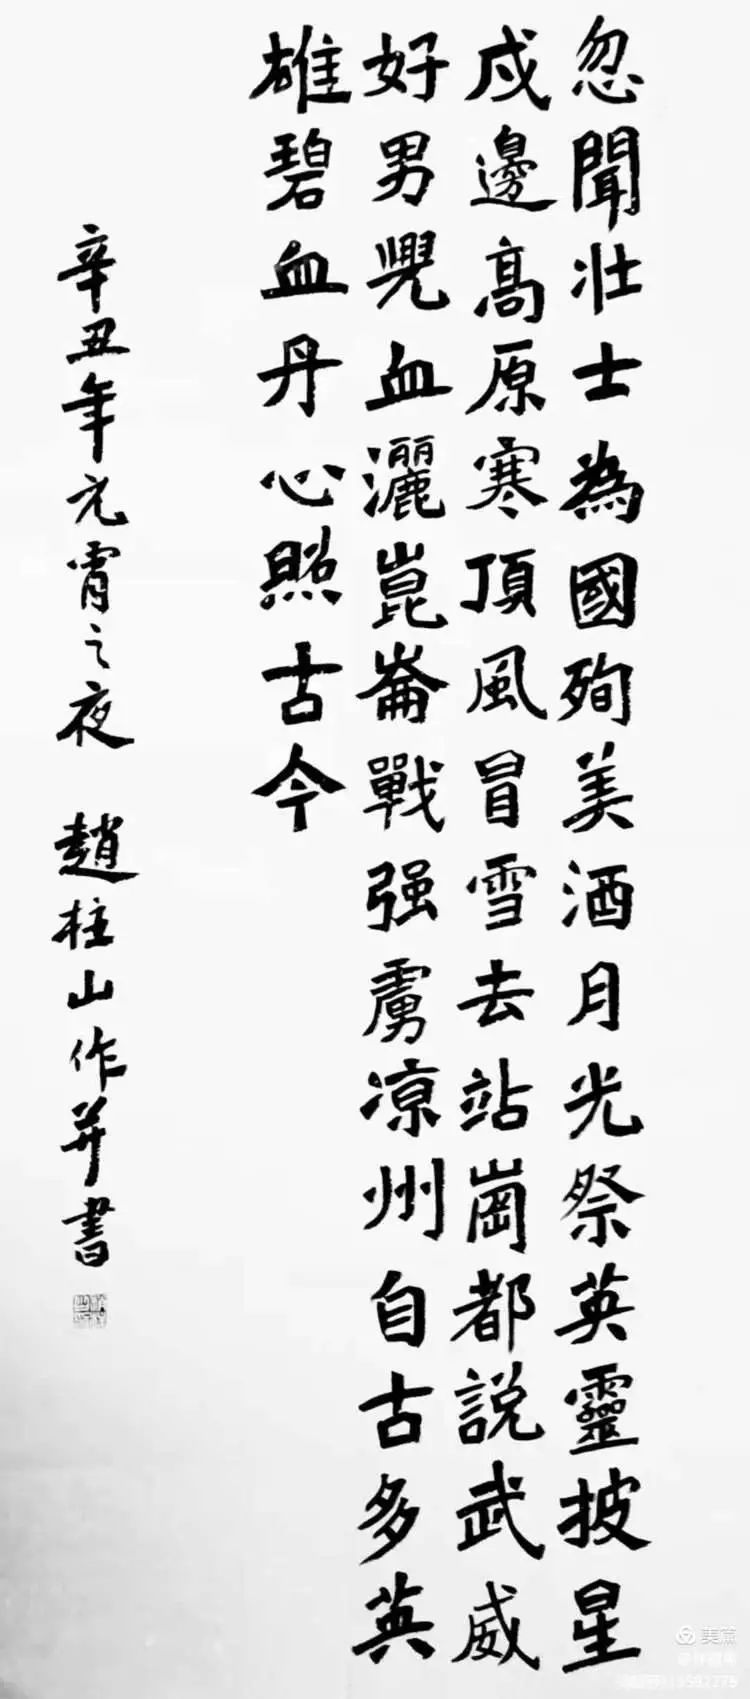 忽聞壮士為國殉美酒月光祭英靈披星
戍邊高原寒頂風冒雪去站崗都説武威
好男兒血灑崑崙戰强虜凉州自古多英
雄碧血丹心照古今
辛丑年元宵之夜 趙柱山作并書
美篇